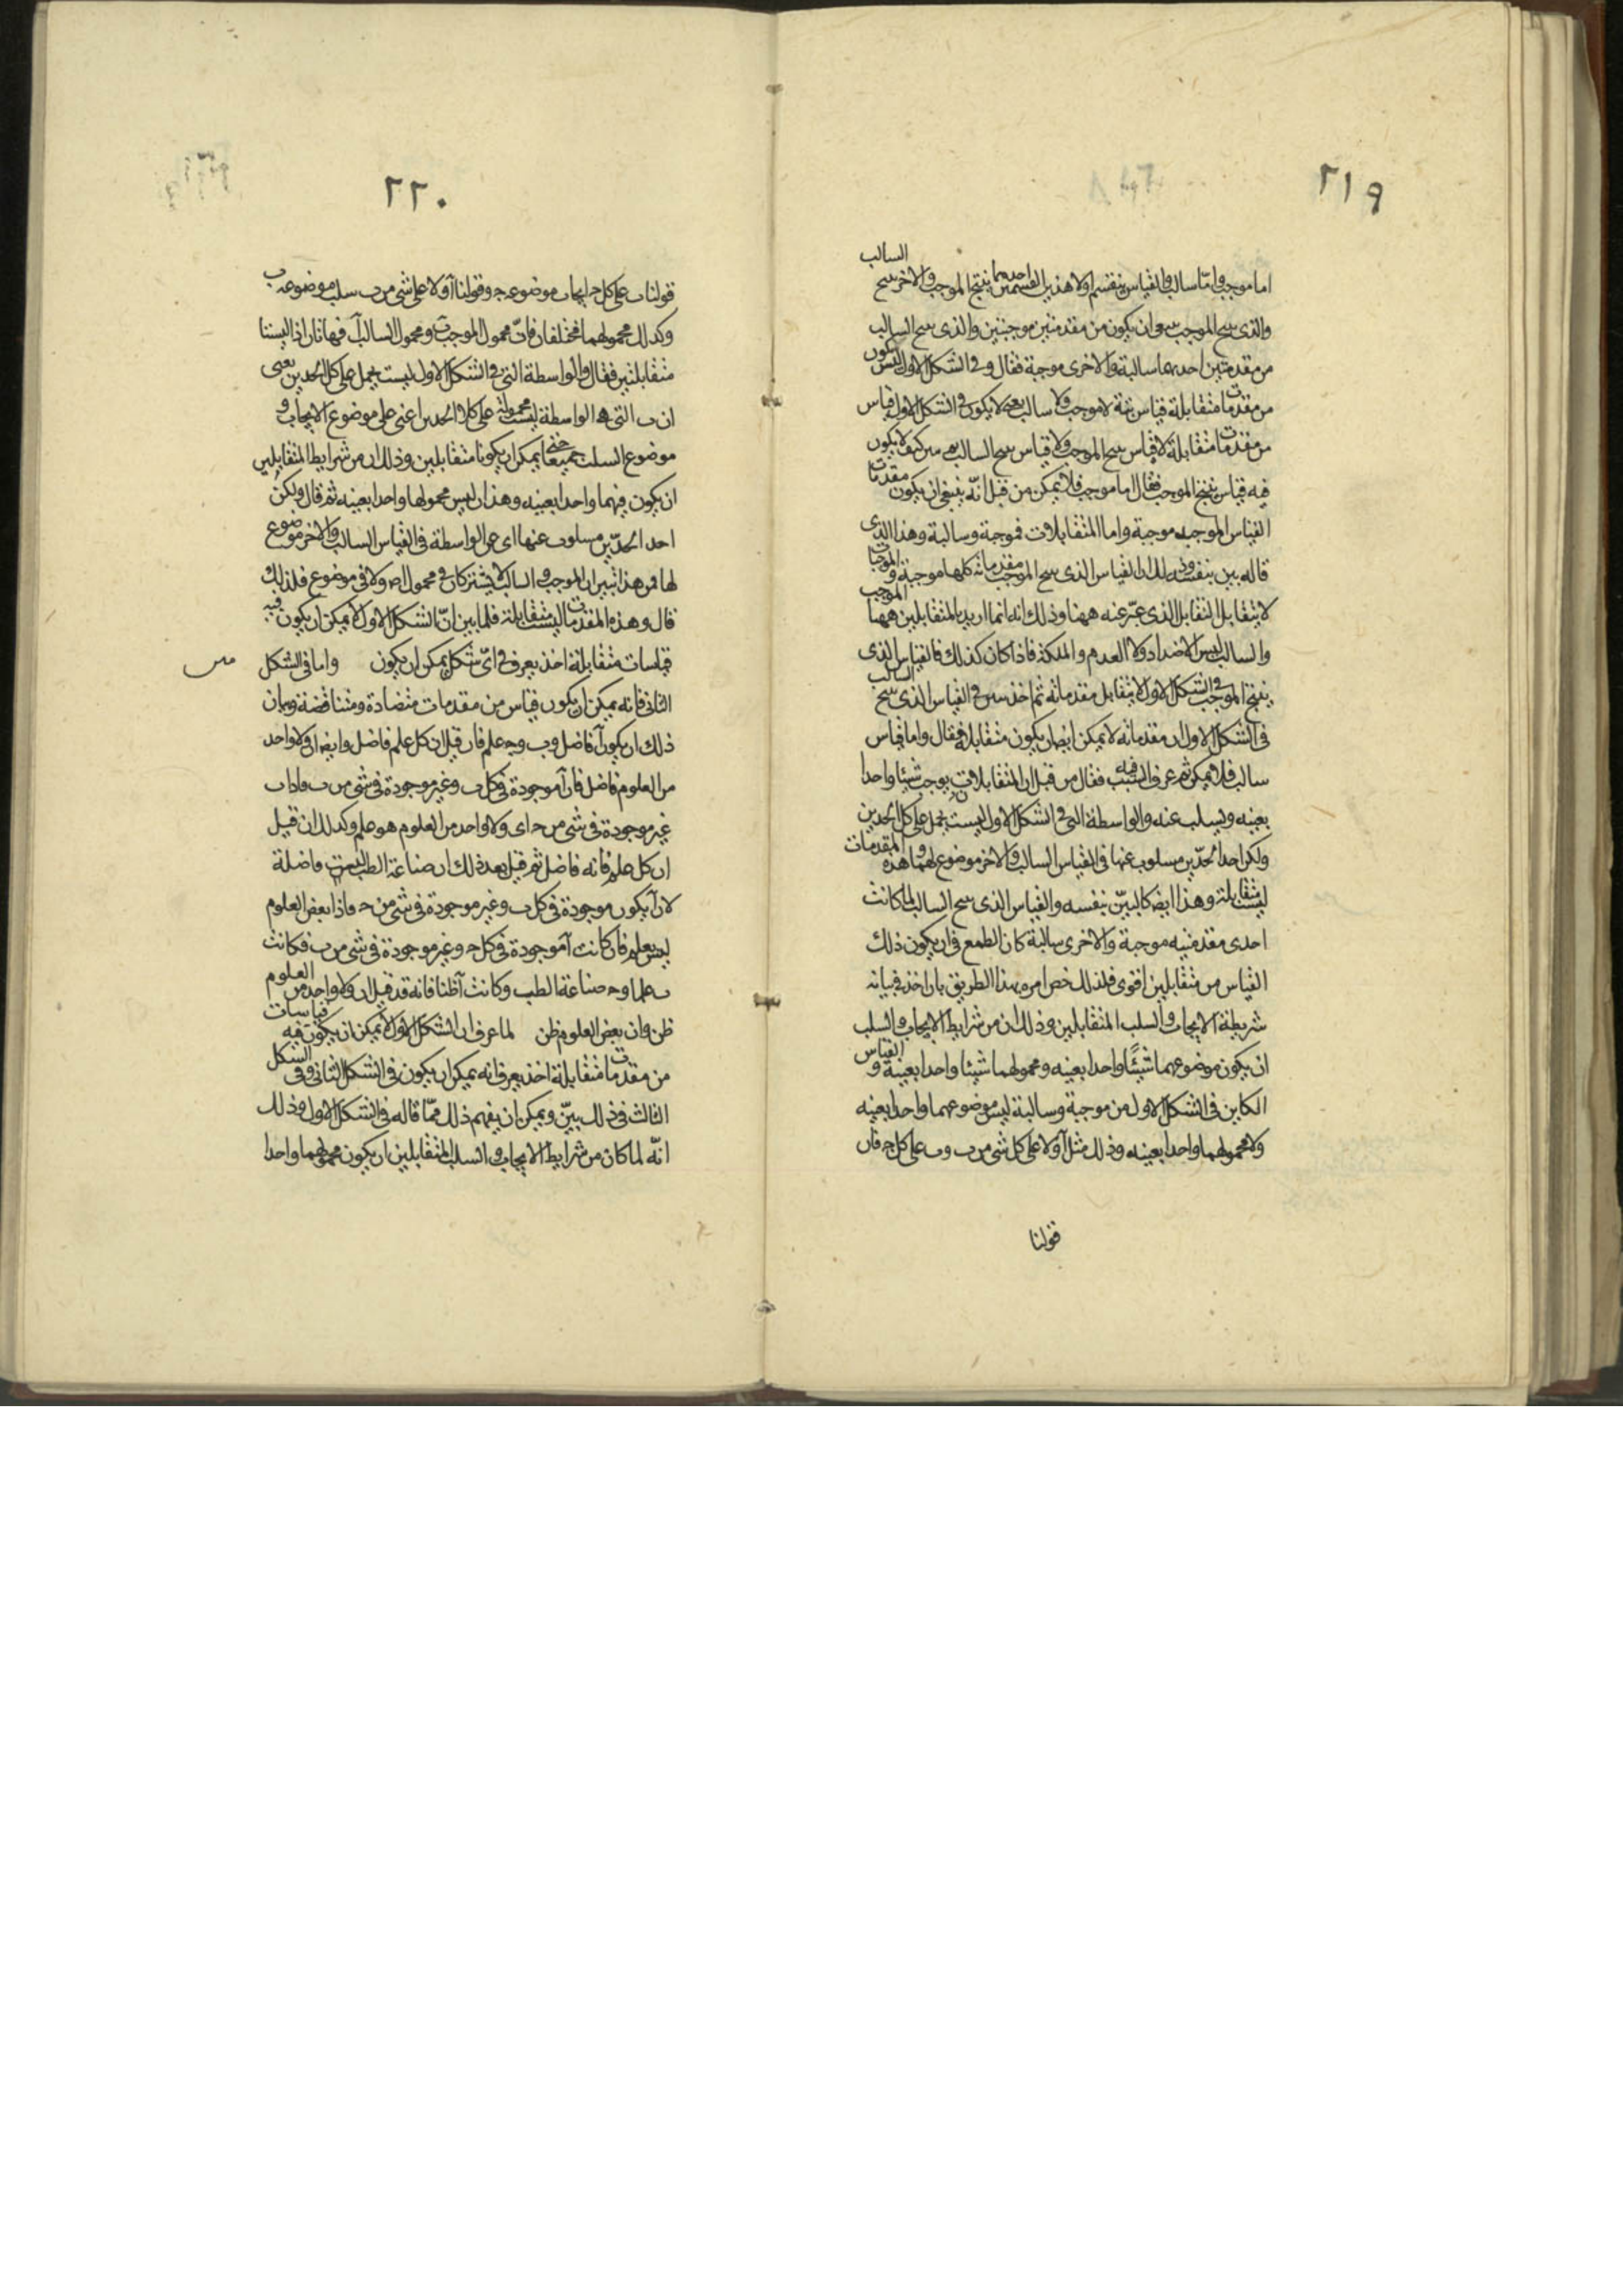 ٢١٩
اما موجب واما سالب والقياس ينقسم اولا هذين القسمين احدهما ينتج الموجب والاخر ينتج السالب
والذى ينتج الموجب هو ان يكون من مقدمتين موجبتين والذى ينتج السالب
من مقدمتين احديهما سالبة والاخرى موجبة فقال وفى الشكل الاول ليس يكون
من مقدمات متقابلة قياس بتة لا موجب ولا سالب يعنى لا يكون فى الشكل الاول قياس
من مقدمات متقابلة لا قياس ينتج الموجب ولا قياس ينتج السالب كيف لا يكون
فيه قياس ينتج الموجب فقال اما موجب فلا يمكن من قبل انه ينبغى ان يكون مقدمات
القياس الموجب موجبة واما المتقابلات فموجبة وسالبة وهذا الذى
قاله بين بنفسه وذلك ان القياس الذى ينتج الموجب مقدماته كلها موجبة والموجبات
لا يتقابل التقابل الذى عبر عنه ههنا وذلك انه انما اريد بالمتقابلين ههنا الموجب
والسالب ليس الاضداد ولا العدم والملكة فاذا كان كذلك فالقياس الذى
ينتج الموجب فى الشكل الاول لا يتقابل مقدماته ثم اخذ يبين فى القياس الذى ينتج السالب
فى الشكل الاول ان مقدماته لا يمكن ايضا ان يكون متقابلة فقال واما قياس
سالب فلا يمكن ثم عرف السبب فيه فقال من قبل ان المتقابلات يوجب شيئا واحدا
بعينه ويسلب عنه والواسطة التى فى الشكل الاول ليست يحمل على كل الحدين
ولكن احد الحدين مسلوب عنها فى القياس السالب والاخر موضوع لها وهذه المقدمات
ليست متقابلة وهذا ايضا كالبين بنفسه والقياس الذى ينتج السالب لما كانت
احدى مقدمتيه موجبة والاخرى سالبة كان الطمع فى ان يكون ذلك
القياس من متقابلين اقوى فلذلك خص امره بهذا الطريق بان اخذ فى بيانه
شريطة الايجاب والسلب المتقابلين وذلك ان من شرايط الايجاب والسلب
ان يكون موضوعهما شيئا واحدا بعينه ومحمولهما شيئا واحدا بعينه والقياس
الكاين فى الشكل الاول من موجبة وسالبة ليس موضوعهما واحدا بعينه
ولا محمولهما واحدا بعينه وذلك مثل آ ولا على كل شى من ب وب على كل ج فان
قولنا
٢٢٠
قولنا ب على كل ج ايجاب موضوعه ج وقولنا آ ولا على شى من ب سلب موضوعه ب
وكذلك محمولهما مختلفان فان محمول الموجب ب ومحمول السالب آ فهاتان اذا ليستا
متقابلتين فقال والواسطة التى فى الشكل الاول ليست يحمل على كل الحدين يعنى
ان ب التى هى الواسطة ليست محمولة على كلا الحدين اعنى على موضوع الايجاب و
موضوع السلب جميعا حتى يمكن ان يكونا متقابلين وذلك ان من شرايط المتقابلين
ان يكون فيهما واحدا بعينه وهذان ليس محمولها واحدا بعينه ثم قال ولكن
احد الحدين مسلوب عنها اى عن الواسطة فى القياس السالب والاخر موضوع
لها فمن هذا تبين ان الموجب والسالب لا يشتركان فى محمول ولا فى موضوع فلذلك
قال وهذه المقدمات ليست متقابلة فلما بين ان الشكل الاول لا يمكن ان يكون فيه
قياسات متقابلة اخذ يعرف فى اى شكل يمكن ان يكون واما فى الشكل
الثانى فانه يمكن ان يكون قياس من مقدمات متضادة ومتناقضة وبيان
ذلك ان يكون آ فاضل وب وج علم فان قيل ان كل علم فاضل وايضا ان ولا واحد
من العلوم فاضل فان آ موجودة فى كل ب وغير موجودة فى شى من ب فاذا ب
غير موجودة فى شى من ج اى ولا واحد من العلوم هو علم وكذلك ان قيل
ان كل علم فانه فاضل ثم قيل بعد ذلك ان صناعة الطب ليست فاضلة
لان آ يكون موجودة فى كل ب وغير موجودة فى شى من ج فاذا بعض العلوم
ليس بعلم فان كانت آ موجودة فى كل ج وغير موجودة فى شى من ب فكانت
ب علما وج صناعة الطب وكانت آ ظنا فانه قد قيل ان ولا واحد من العلوم
ظن وان بعض العلوم ظن لما عرف ان الشكل الاول لا يمكن ان يكون فيه قياسات
من مقدمات متقابلة اخذ يعرف انه يمكن ان يكون فى الشكل الثانى وفى الشكل
الثالث فى ذلك بين ويمكن ان يفهم ذلك مما قاله فى الشكل الاول وذلك
انه لما كان من شرايط الايجاب والسلب المتقابلين ان يكون محمولهما واحدا